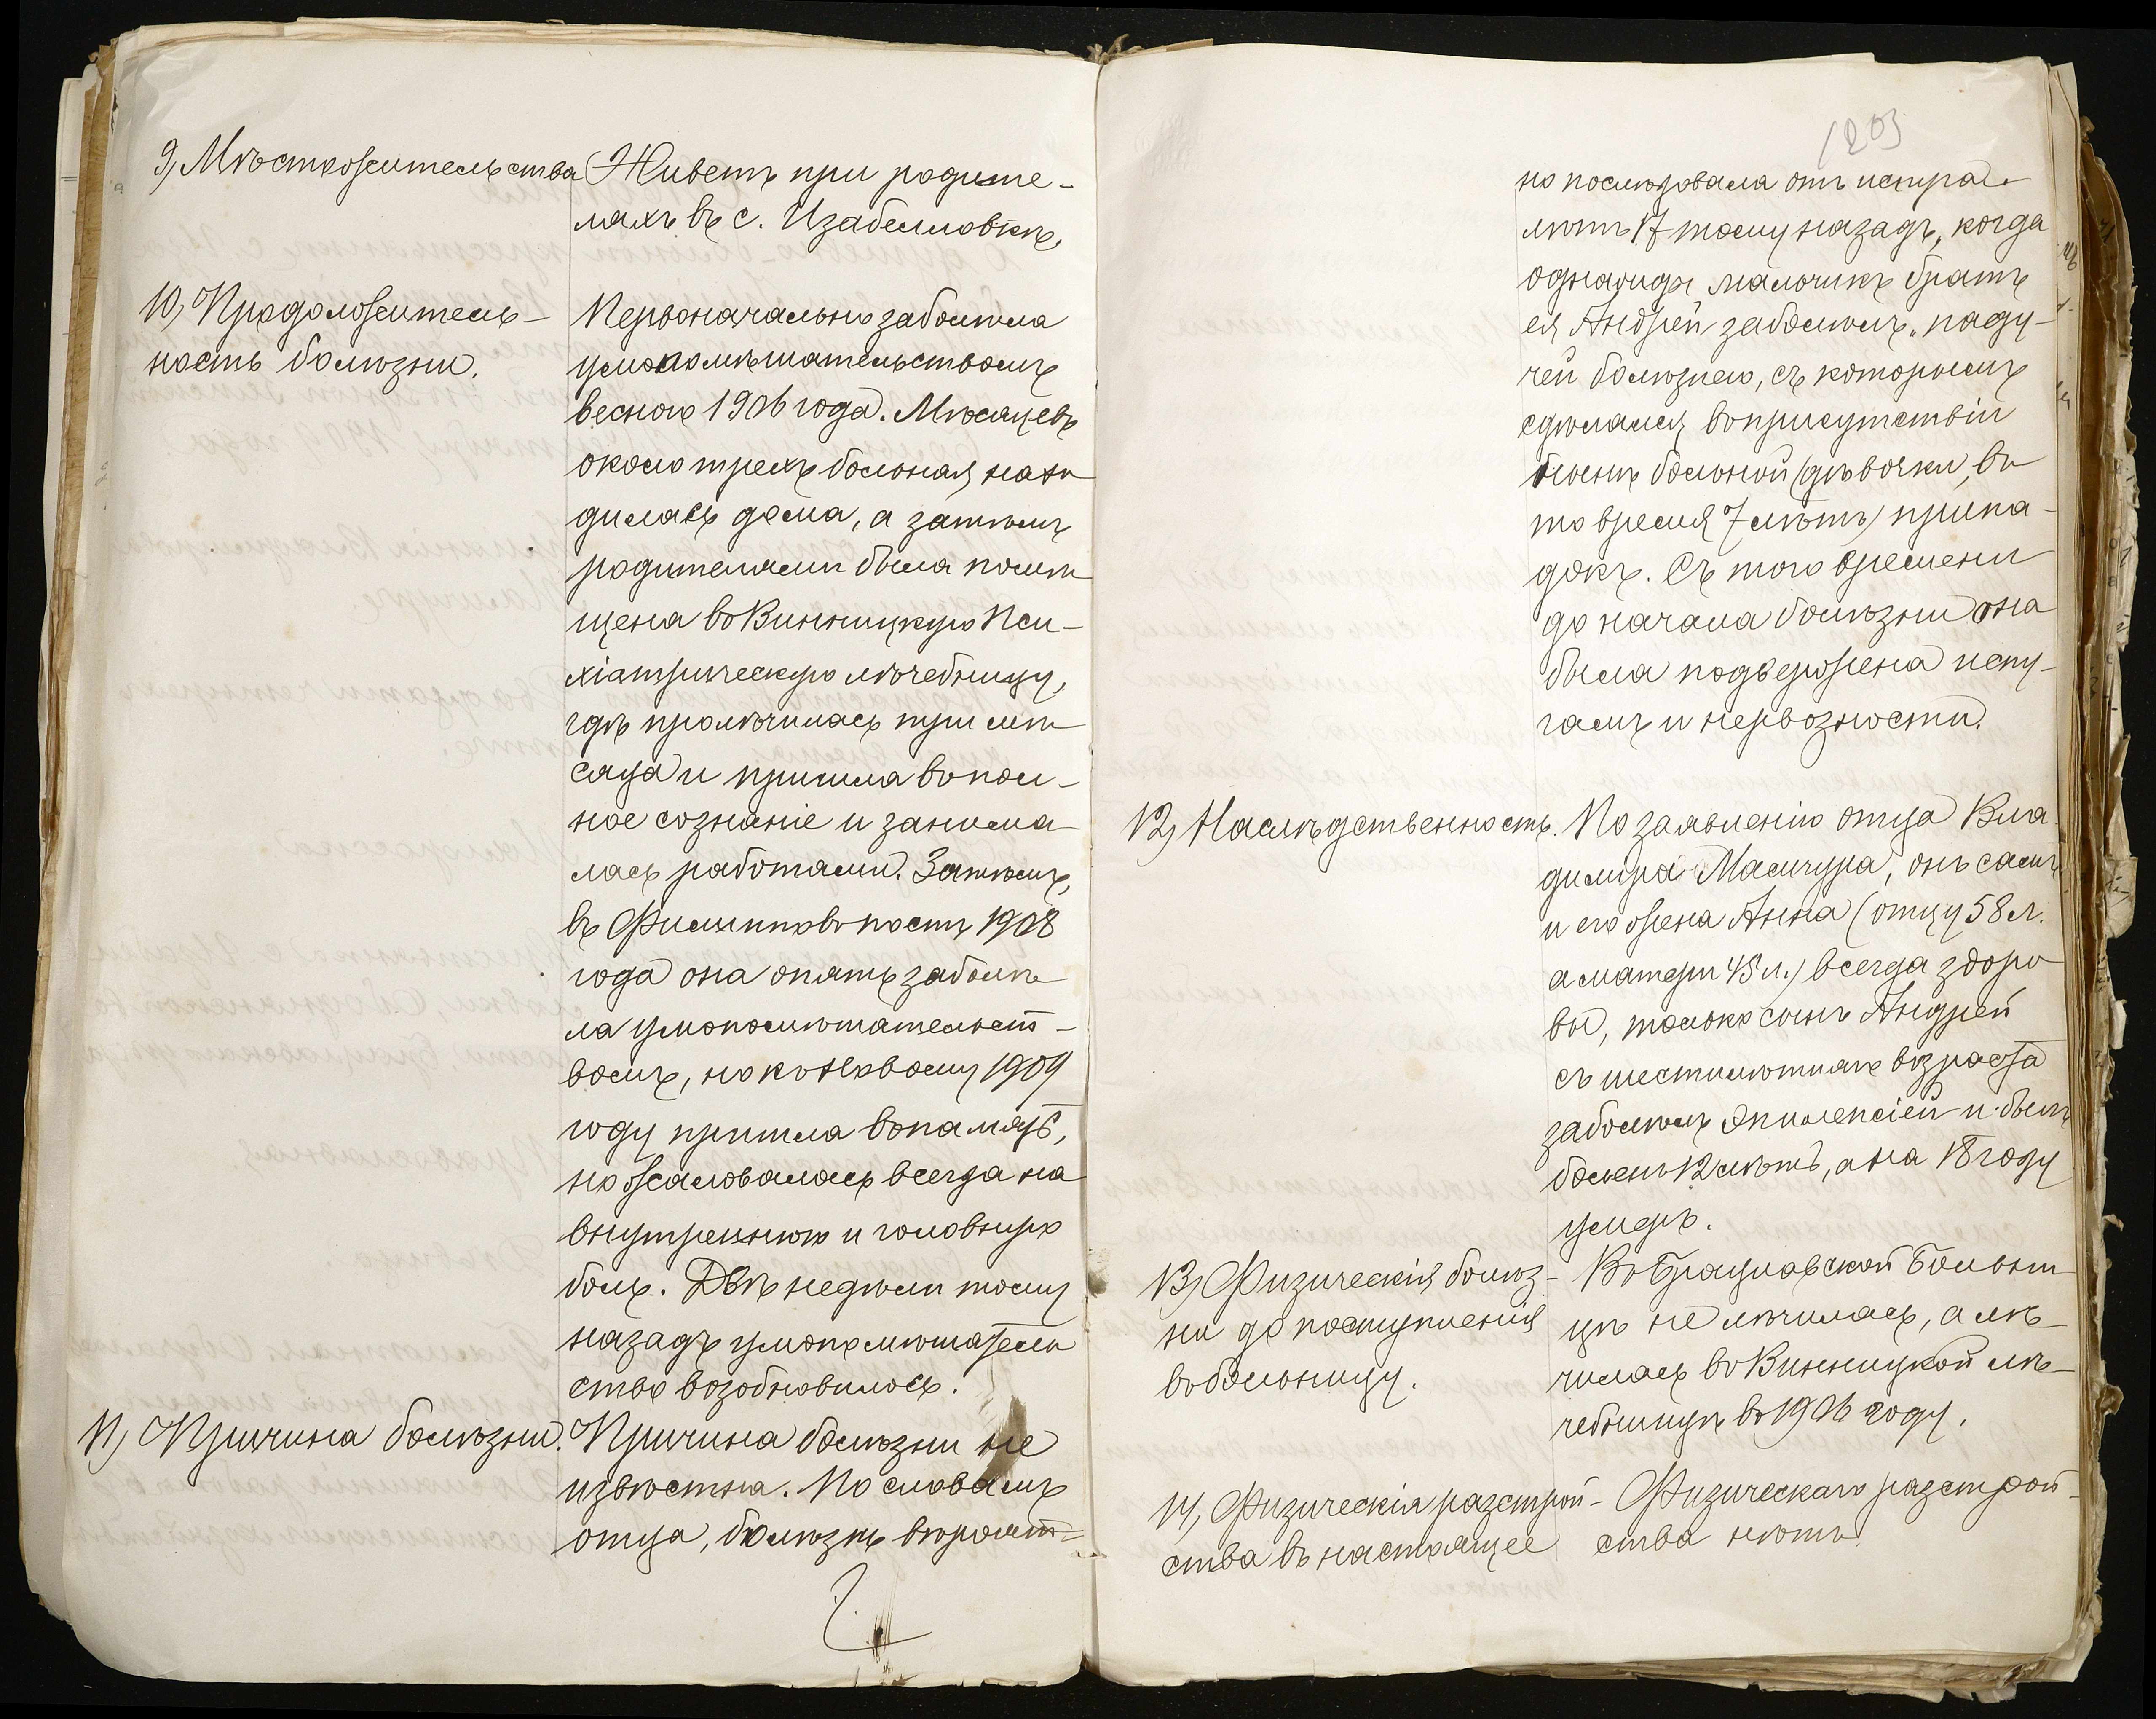 9) Мѣстожительства
Живетъ при родите-
ляхъ въ с. Изабелловкѣ,
10) Продолжитель-
ность болѣзни.
Первоначально заболѣла
умопомѣшательствомъ
весною 1906 года. Мѣсяцевъ
около трехъ больная нахо
дилась дома, а затѣмъ
родителями была помѣ
щена въ Винницкую Пси-
хіатрическую лѣчебницу,
гдѣ пролѣчилась три мѣ
сяца и пришла въ пол-
ное сознаніе и занима
лась работами. Затѣмъ,
въ Филипповъ постъ 1908
года она опять заболѣ
ла умопомѣшательст-
вомъ, но къ Новому 1909
году пришла въ память,
но жаловалась всегда на
внутреннюю и головную
боль. Двѣ недѣли тому
назадъ умопомѣшатель
ство возобновилось.
11) Причина болѣзни.
Причина болѣзни не
извѣстна. По словамъ
отца, болѣзнь вѣроят=
1203
но послѣдовала отъ испуга
лѣтъ 17 тому назадъ, когда
однажды мальчикъ братъ
ея Андрей заболѣлъ „паду-
чей болѣзнею, съ которымъ
сдѣлался въ присутствіи
нынѣ больной (дѣвочки, въ
то время 7 лѣтъ) припа-
докъ. Съ того времени
до начала болѣзни она
была подвержена испу-
гамъ и нервозности.
12) Наслѣдственность.
По заявленію отца Вла
диміра Мамчура, онъ самъ
и его жена Анна (отцу 58 л.
а матери 45 л.) всегда здоро
вы, только сынъ Андрей
съ шестилѣтняго возраста
заболѣлъ эпилепсіей и былъ
боленъ 12 лѣтъ, а на 18 году
умеръ.
13) Физическія болѣз-
ни до поступленія
въ больницу.
Въ Брацлавской Больни
цѣ не лѣчилась, а лѣ-
чилась въ Винницкой лѣ-
чебницѣ въ 1906 году.
14) Физическія разстрой-
ства въ настоящее
Физическаго разстрой-
ства нѣтъ.